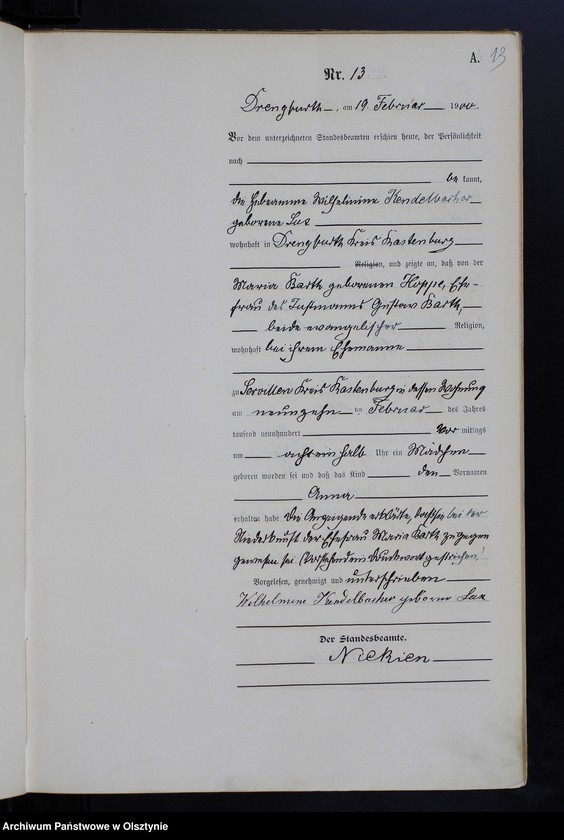 A. 13
Nr. 13
Drengfurth, am 19. Februar 1900.
Vor dem unterzeichneten Standesbeamten erschien heute, der Persönlichkeit
nach
be kannt,
die Hebeamme Wilhelmine Kendelbacher
geborene
wohnhaft in Drengfurth Kreis Rastenburg
Religion, und zeigte an, daß von der
Maria Barth geborenen Hoppe, Ehe-
frau des Instmanns Gustav Barth,
beide evangelischer Religion,
wohnhaft bei ihrem Ehemanne
zu Servillen Kreis Rastenburg in dessen Wohnung
am neunzehn ten Februar des Jahres
tausend neunhundert Vor mittags
um acht ein halb Uhr ein Mädchen
geboren worden sei und daß das Kind den Vornamen
Anna
erhalten habe. Die Anzeigende erklärte, daß sie bei der
Niederkunft der Ehefrau Maria Barth zugegen
gewesen sei (Vorstehend ein Druckwort gestrichen)
Vorgelesen, genehmigt und unterschrieben
Wilhelmine Kendelbacher geborne
Der Standesbeamte.
Nickien
Archiwum Państwowe w Olsztynie